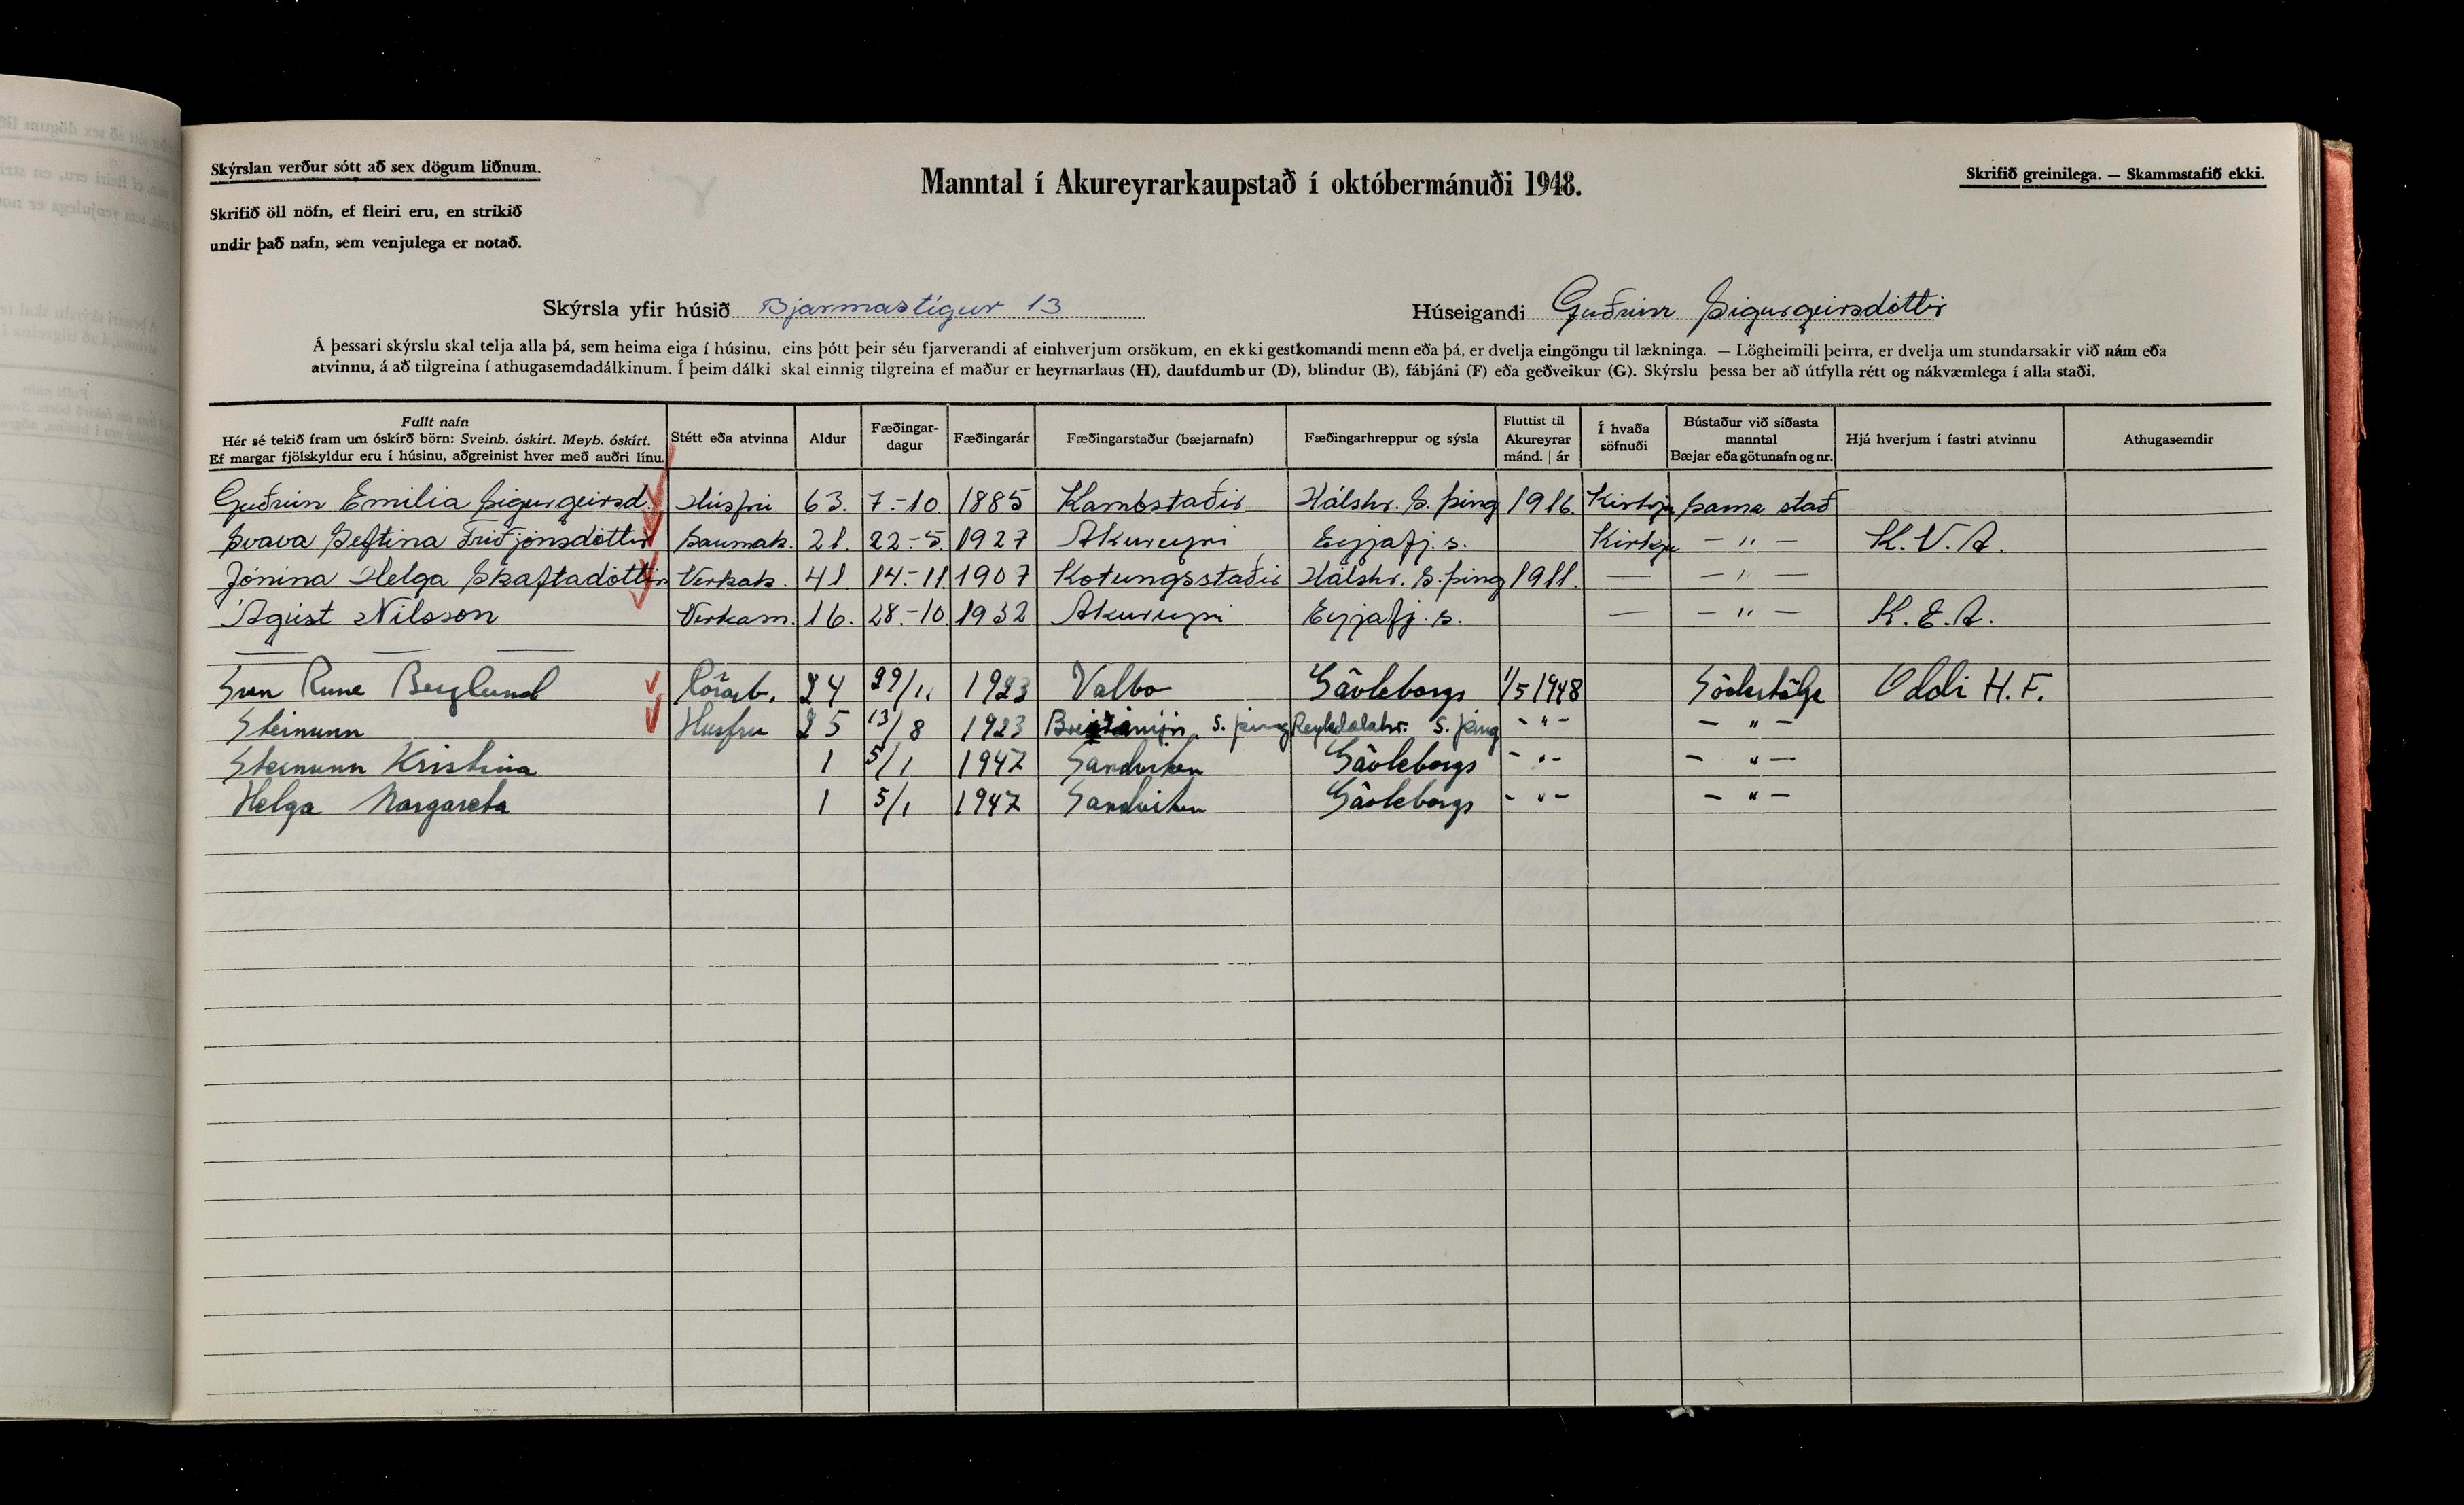 Skýrslan verður sótt að sex dögum liðnum.
Skrifið öll nöfn, ef fleiri eru, en strikið
undir það nafn, sem venjulega er notað.
Manntal í Akureyrarkaupstað í októbermánuði 1948.
Skrifið greinilega. — Skammstafið ekki.
Skýrsla yfir húsið Bjarmastígur 13
Húseigandi Guðrún Sigurgeirsdóttir
Á þessari skýrslu skal telja alla þá, sem heima eiga í húsinu, eins þótt þeir séu fjarverandi af einhverjum orsökum, en ekki gestkomandi menn eða þá, er dvelja eingöngu til lækninga. — Lögheimili þeirra, er dvelja um stundarsakir við nám eða
atvinnu, á að tilgreina í athugasemdadálkinum. Í þeim dálki skal einnig tilgreina ef maður er heyrnarlaus (H), daufdumbur (D), blindur (B), fábjáni (F) eða geðveikur (G). Skýrslu þessa ber að útfylla rétt og nákvæmlega í alla staði.
Fullt nafn
Hér sé tekið fram um óskírð börn: Sveinb. óskírt. Meyb. óskírt.
Ef margar fjölskyldur eru í húsinu, aðgreinist hver með auðri línu.
Stétt eða atvinna
Aldur
Fæðingar-
dagur
Fæðingarár
Fæðingarstaður (bæjarnafn)
Fæðingarhreppur og sýsla
Fluttist til
Akureyrar
mánd. | ár
Í hvaða
söfnuði
Bústaður við síðasta
manntal
Bæjar eða götunafn og nr.
Hjá hverjum í fastri atvinnu
Athugasemdir
Guðrún Emilia Sigurgeirsd. Húsfrú 63. 7.-10. 1885 Kambstaðir Hálshr. S. þing 1916. Kirkju Sama stað
Svava Seftina Friðjónsdóttir Saumak. 21. 22-5. 1927 Akureyri Eyjafj. s. Kirkju — " — K. V. A.
Jónína Helga Skaftadóttir Verkak. 41 14.-11 1907 Kotungsstaðir Hálshr. S. þing 1911. — — " —
Ágúst Nilsson Verkam. 16. 28.-10. 1932 Akureyri Eyjafj. s. — — " — K. E. A.
Sven Rune Berglund Rörarb. 24 29/11 1923 Valbo Gävleborgs 1/5 1948 Södertälje Oddi H. F.
Steinunn Husfru 25 13/8 1923 S. þing Reykdælahr. S. þing - " - — " —
Steinunn Kristina 1 5/1 1947 Sandviken Gävleborgs - " - — " —
Helga Margareta 1 5/1 1947 Sandviken Gävleborgs - " - — " —